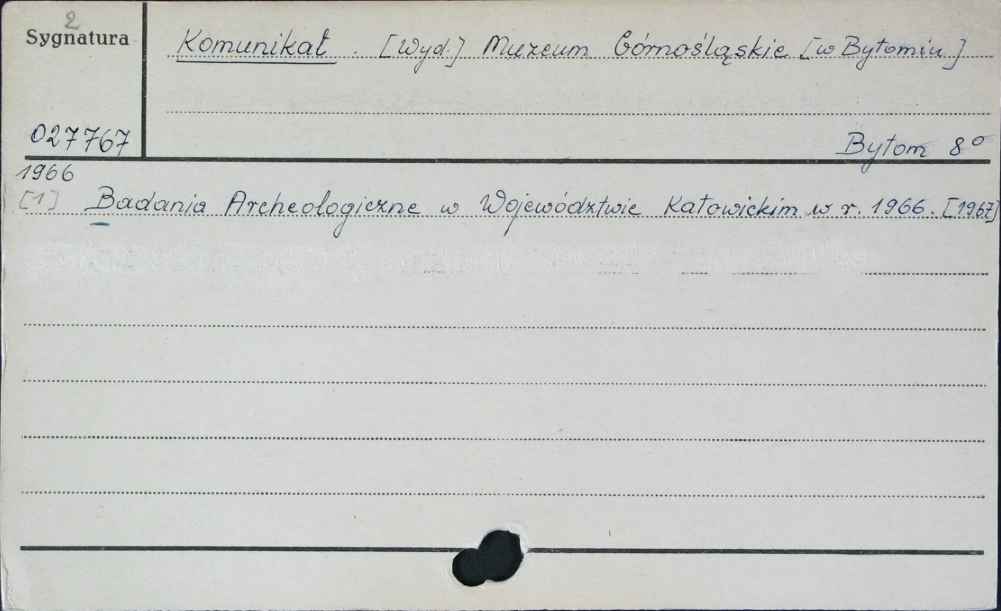 2
Sygnatura
Komunikat. [Wyd.] Muzeum Górnośląskie [w Bytomiu]
027767
Bytom 8°
1966
[1] Badania Archeologiczne w Województwie Katowickim w r. 1966. [1967]